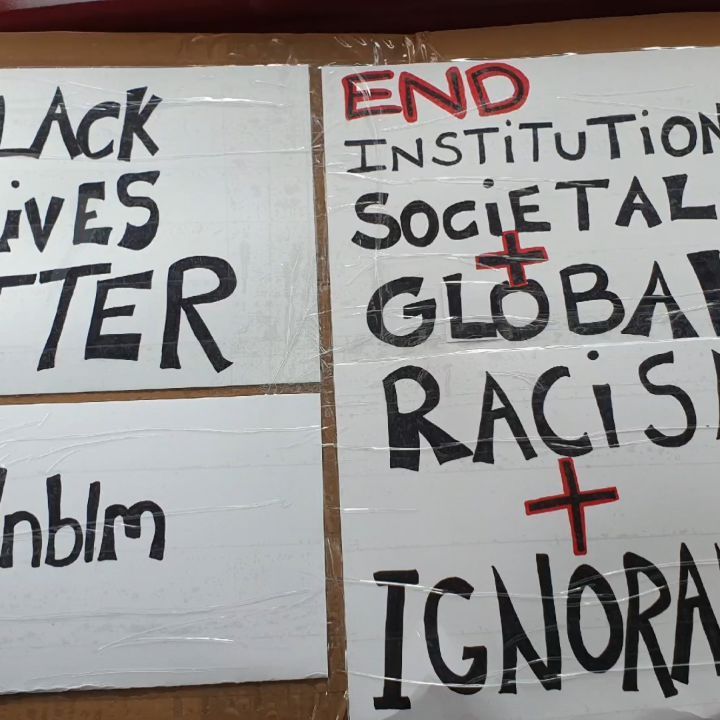 LACK
iVES
TTER
/nblm
END
INSTiTUTiON
SOCiETAL
+
GLOBAL
RACiSM
+
IGNORA